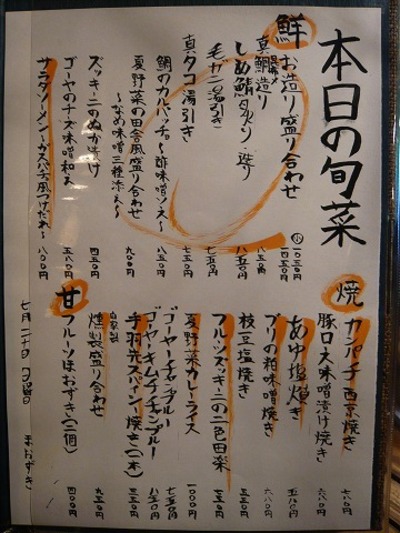 本日の旬菜
鮮 お造り盛り合わせ 小一〇三〇円 一四五〇円
真鯛造り 昆布〆 八五〇円
しめ鯖炙り・造り 八五〇円
毛ガニ湯引き 七五〇円
真タコ湯引き 七五〇円
鯛のカルパッチョ〜酢味噌ソース〜 八五〇円
夏野菜の田舎風盛り合わせ
〜なめ味噌三種添え〜 九〇〇円
ズッキーニのぬか漬け 四五〇円
ゴーヤのチーズ味噌和え 五八〇円
サラダソーメン〜ガスパチョ風つけだれ〜 八〇〇円
焼 カンパチ西京焼き 七八〇円
豚ロース味噌漬け焼き 六八〇円
あゆ塩焼き 五八〇円
ブリの粕味噌焼き 六八〇円
枝豆塩焼き 三五〇円
フルーツズッキーニの二色田楽 五五〇円
夏野菜カレーライス 一〇〇〇円
ゴーヤーチャンプルー 七五〇円
ゴーヤーキムチチャンプルー 八五〇円
手羽先スパイシー焼き(二本) 三五〇円
自家製 燻製盛り合わせ 九五〇円
甘 フルーツほおずき(三個) 四〇〇円
七月二十日 日曜日